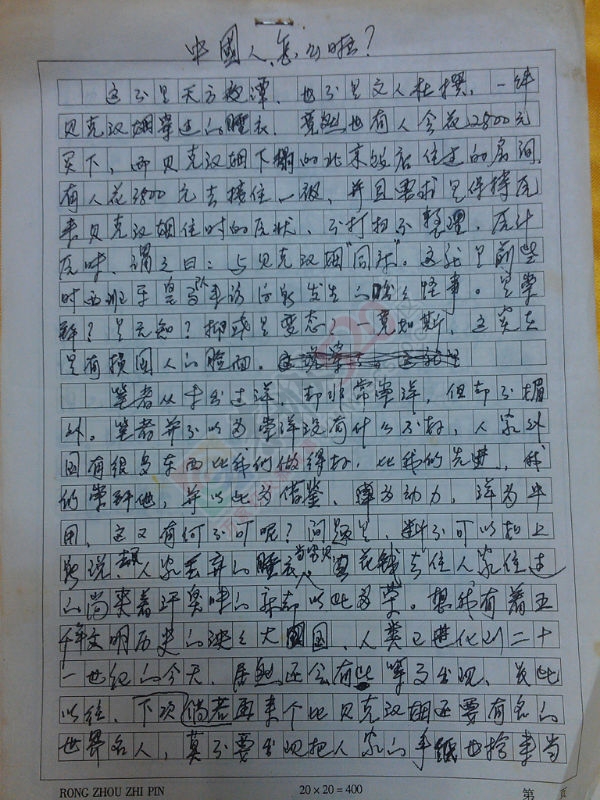 中國人怎么啦？
这不是天方夜潭，也不是文人杜撰，一件
贝克汉姆穿过的睡衣，竟然也有人会花2800元
买下，而贝克汉姆下榻的北京饭店住过的房间，
有人花3800元去接住一夜，并且要求是保持原
来贝克汉姆住时的原状，不打扫不整理，原汁
原味，谓之曰：与贝克汉姆“同床”。这就是前些
时西班牙皇马队来访后发生的咄咄怪事。是崇
拜？是无知？抑或是变态？一竟如斯，这实在
是有损国人的脸面。
笔者从未出过洋，却非常崇洋，但却不媚
外。笔者并不以为崇洋没有什么不好，人家外
国有很多东西比我们做得好，比我们先进，我
们崇拜他，并以此为借鉴，为动力，洋为中
用，这又有何不可呢？问题是，料不可以和上
所说，把人家丢弃的睡衣当宝贝，花钱去住人家住过
的尚来着汗臭味的 以此为荣。想我有着五
千年文明历史的泱泱大国，人类已进化到二十
一世纪的今天，居然还会有此等事出现，长此
以往，下次倘若再来个比贝克汉姆还要有名的
世界名人，莫不要出现把人家的手纸也拾来当
RONG ZHOU ZHI PIN
20×20=400
第 页